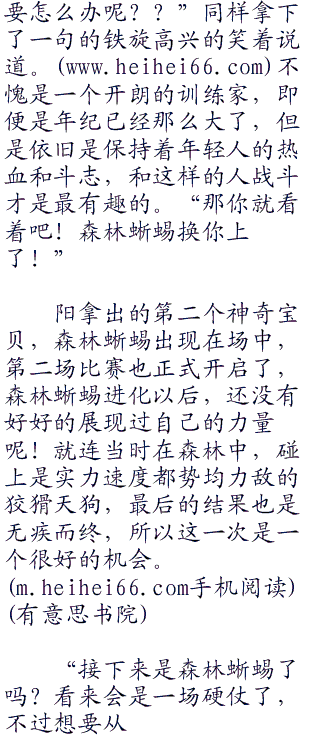 要怎么办呢？？”同样拿下
了一句的铁旋高兴的笑着说
道。(www.heihei66.com)不
愧是一个开朗的训练家，即
便是年纪已经那么大了，但
是依旧是保持着年轻人的热
血和斗志，和这样的人战斗
才是最有趣的。“那你就看
着吧！森林蜥蜴换你上
了！”
阳拿出的第二个神奇宝
贝，森林蜥蜴出现在场中，
第二场比赛也正式开启了，
森林蜥蜴进化以后，还没有
好好的展现过自己的力量
呢！就连当时在森林中，碰
上是实力速度都势均力敌的
狡猾天狗，最后的结果也是
无疾而终，所以这一次是一
个很好的机会。
(m.heihei66.com手机阅读)
(有意思书院)
“接下来是森林蜥蜴了
吗？看来会是一场硬仗了，
不过想要从